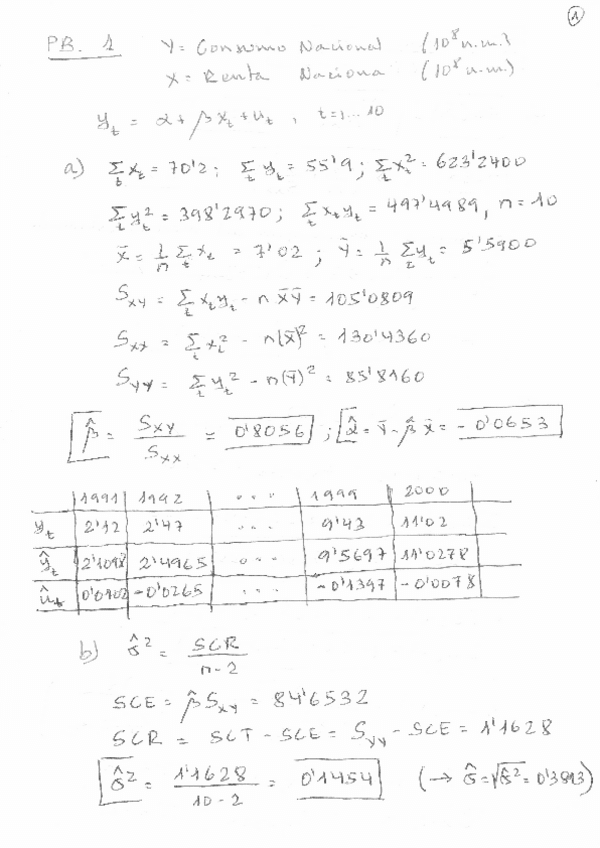 1
PB. 1 Y = Consumo Nacional (10⁸ u.m.)
X = Renta Naciona (10⁸ u.m.)
y_t = α + βx_t + u_t , t=1...10
a) Σ_t x_t = 70'2; Σ_t y_t = 55'9; Σ_t x_t² = 623'2400
Σ_t y_t² = 398'2970; Σ_t x_t y_t = 497'4989, n = 10
x̄ = 1/n Σ_t x_t = 7'02; ȳ = 1/n Σ_t y_t = 5'5900
S_xy = Σ_t x_t y_t - n x̄ ȳ = 105'0809
S_xx = Σ_t x_t² - n(x̄)² = 130'4360
S_yy = Σ_t y_t² - n(ȳ)² = 85'8160
β̂ = S_xy / S_xx = 0'8056 ; α̂ = ȳ - β̂ x̄ = -0'0653
1991 1992 ... 1999 2000
y_t 2'12 2'47 ... 9'43 11'02
ŷ_t 2'1098 2'4965 ... 9'5697 11'0278
û_t 0'0102 -0'0265 ... -0'1397 -0'0078
b) σ̂² = SCR / n-2
SCE = β̂ S_xy = 84'6532
SCR = SCT - SCE = S_yy - SCE = 1'1628
σ̂² = 1'1628 / 10-2 = 0'1454 (→ σ̂ = √σ̂² = 0'3813)